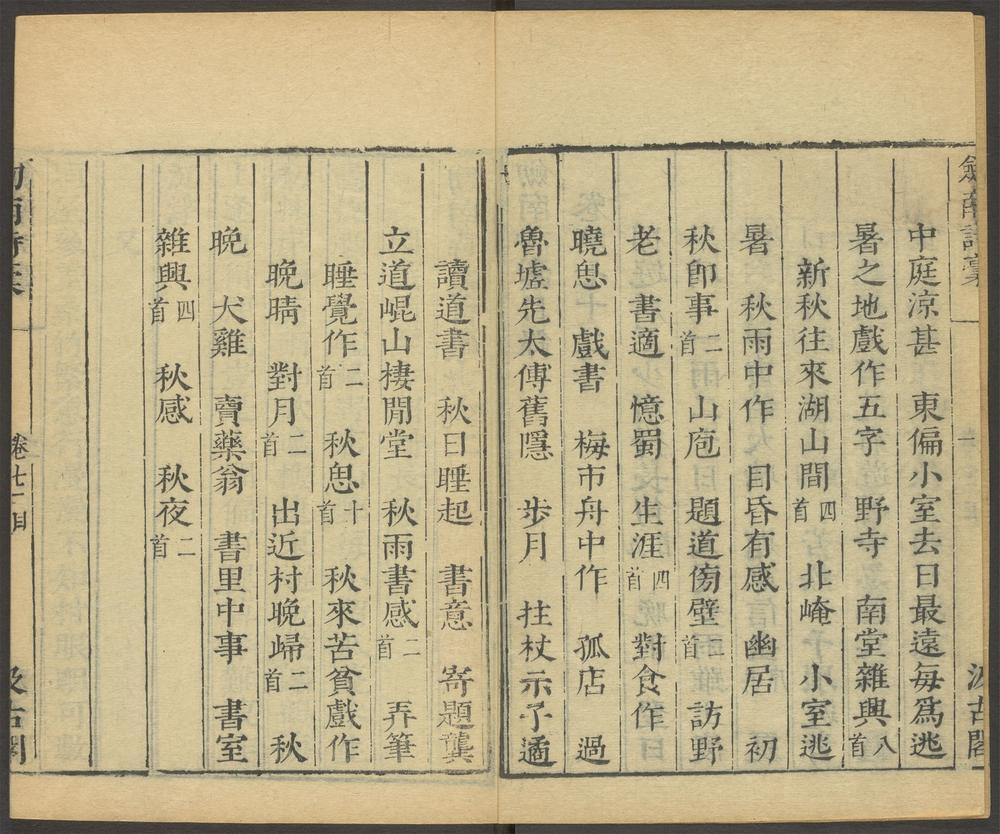 劍南詩稾
汲古閣
中庭涼甚　東偏小室去日最遠每爲逃
暑之地戲作五字　野寺　南堂雜興八首
新秋往來湖山間四首　北崦　小室逃
暑　秋雨中作　目昏有感　幽居　初
秋卽事二首　山庖　題道傍壁二首　訪野
老　書適　憶蜀　生涯四首　對食作
曉思　戲書　梅市舟中作　孤店　過
魯墟先太傅舊隱　步月　拄杖示子遹
讀道書　秋日睡起　書意　寄題龔
立道崐山棲閒堂　秋雨書感二首　弄筆
睡覺作二首　秋思十首　秋來苦貧戲作
晩晴　對月二首　出近村晩歸二首　秋
晩　犬雞　賣藥翁　書里中事　書室
雜興四首　秋感　秋夜二首
卷七十一目
汲古閣